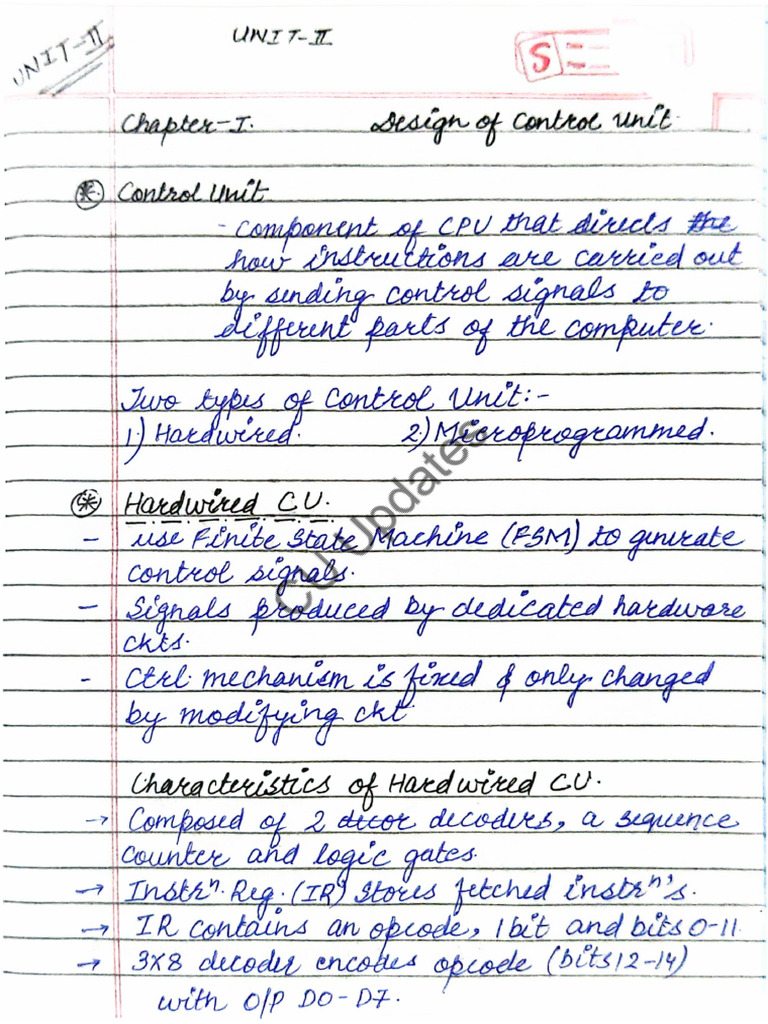 UNIT-II
UNIT-II
S
Chapter-I. Design of Control Unit.
* Control Unit
- component of CPU that directs the
how instructions are carried out
by sending control signals to
different parts of the computer.
Two types of Control Unit:-
1.) Hardwired. 2.) Microprogrammed.
* Hardwired C.U.
- use Finite State Machine (FSM) to generate
control signals.
- Signals produced by dedicated hardware
ckts.
- Ctrl. mechanism is fixed & only changed
by modifying ckt
Characteristics of Hardwired C.U.
→ Composed of 2 decor decoders, a sequence
counter and logic gates.
→ Instrⁿ. Reg. (IR) stores fetched instrⁿ's.
→ IR contains an opcode, 1 bit and bits 0-11.
→ 3x8 decoder encodes opcode (bits 12-14)
with O/P D0-D7.
CU Updates